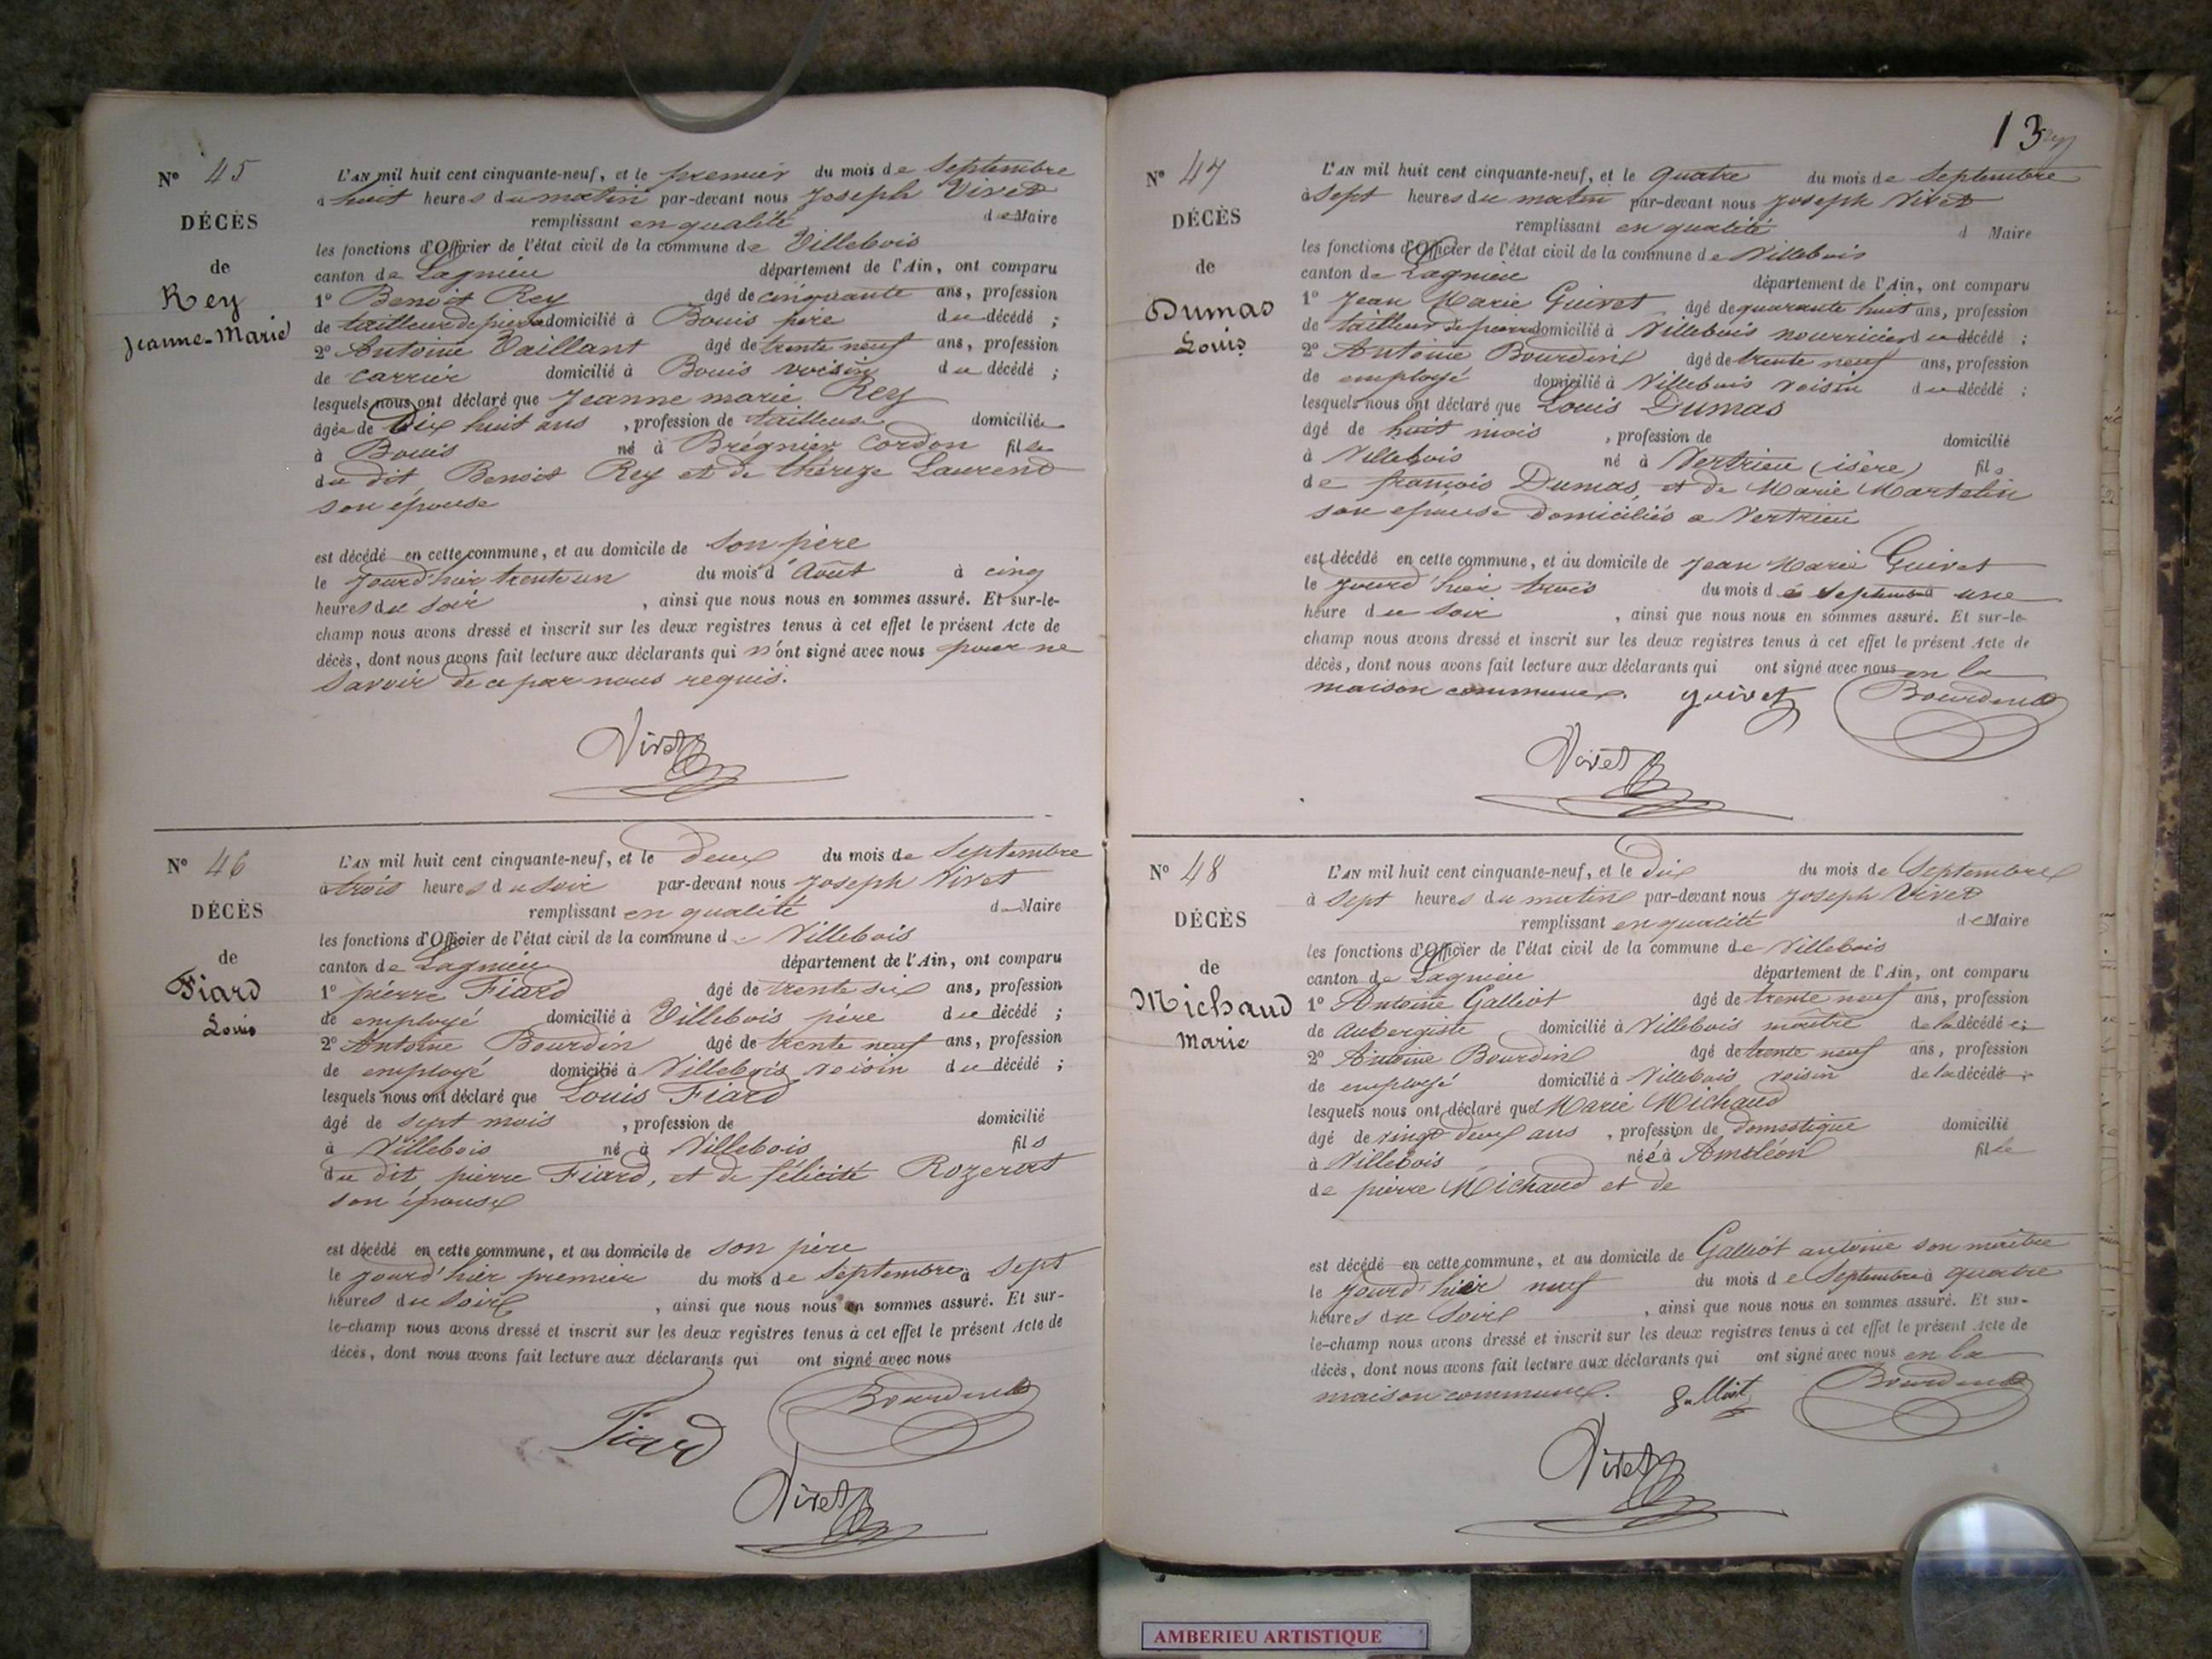 N° 45
DÉCÈS
de
Rey
Jeanne-Marie
L'AN mil huit cent cinquante-neuf, et le premier du mois de Septembre
à huit heures du matin par-devant nous Joseph Vivet
remplissant en qualité de Maire
les fonctions d'Officier de l'état civil de la commune de Villebois
canton de Lagnieu département de l'Ain, ont comparu
1° Benoit Rey âgé de cinquante ans, profession
de tailleur de pierre domicilié à Bouis père du décédé ;
2° Antoine Vaillant âgé de trente neuf ans, profession
de carrier domicilié à Bouis voisin du décédé ;
lesquels nous ont déclaré que Jeanne marie Rey
âgée de Dix huit ans , profession de tailleuse domiciliée
à Bouis né à Brégnier Cordon fille
du dit Benoit Rey et de thérèze Laurend
son épouse
est décédé en cette commune, et au domicile de son père
le jourd'hier trente un du mois d'Août à cinq
heures du soir , ainsi que nous nous en sommes assuré. Et sur-le-
champ nous avons dressé et inscrit sur les deux registres tenus à cet effet le présent Acte de
décès, dont nous avons fait lecture aux déclarants qui n'ont signé avec nous pour ne
savoir de ce par nous requis.
Vivet
N° 46
DÉCÈS
de
Fiard
Louis
L'AN mil huit cent cinquante-neuf, et le deux du mois de Septembre
à trois heures du soir par-devant nous Joseph Vivet
remplissant en qualité de Maire
les fonctions d'Officier de l'état civil de la commune de Villebois
canton de Lagnieu département de l'Ain, ont comparu
1° pierre Fiard âgé de trente six ans, profession
de employé domicilié à Villebois père du décédé ;
2° Antoine Bourdin âgé de trente neuf ans, profession
de employé domicilié à Villebois voisin du décédé ;
lesquels nous ont déclaré que Louis Fiard
âgé de sept mois , profession de domicilié
à Villebois né à Villebois fils
du dit pierre Fiard, et de félicité Rozerat
son épouse
est décédé en cette commune, et au domicile de son père
le jourd'hier premier du mois de Septembre à sept
heures du soir , ainsi que nous nous en sommes assuré. Et sur-
le-champ nous avons dressé et inscrit sur les deux registres tenus à cet effet le présent Acte de
décès, dont nous avons fait lecture aux déclarants qui ont signé avec nous
Fiard Bourdin
Vivet
13
N° 47
DÉCÈS
de
Dumas
Louis
L'AN mil huit cent cinquante-neuf, et le quatre du mois de Septembre
à sept heures du matin par-devant nous Joseph Vivet
remplissant en qualité d Maire
les fonctions d'Officier de l'état civil de la commune de Villebois
canton de Lagnieu département de l'Ain, ont comparu
1° Jean Marie Guivet âgé de quarante huit ans, profession
de tailleur de pierre domicilié à Villebois nourricier du décédé ;
2° Antoine Bourdin âgé de trente neuf ans, profession
de employé domicilié à Villebois voisin du décédé ;
lesquels nous ont déclaré que Louis Dumas
âgé de huit mois , profession de domicilié
à Villebois né à Vertrieu (isère) fils
de françois Dumas et de Marie Martelin
son épouse domiciliés a Vertrieu
est décédé en cette commune, et au domicile de Jean Marie Guivet
le jourd'hier trois du mois de septembre à une
heure du soir , ainsi que nous nous en sommes assuré. Et sur-le-
champ nous avons dressé et inscrit sur les deux registres tenus à cet effet le présent Acte de
décès, dont nous avons fait lecture aux déclarants qui ont signé avec nous en la
maison commune. guivet Bourdin
Vivet
N° 48
DÉCÈS
de
Michaud
Marie
L'AN mil huit cent cinquante-neuf, et le dix du mois de Septembre
à sept heures du matin par-devant nous Joseph Vivet
remplissant en qualité de Maire
les fonctions d'Officier de l'état civil de la commune de Villebois
canton de Lagnieu département de l'Ain, ont comparu
1° Antoine Galliot âgé de trente neuf ans, profession
de aubergiste domicilié à Villebois maître de la décédée ;
2° Antoine Bourdin âgé de trente neuf ans, profession
de employé domicilié à Villebois voisin de la décédé ;
lesquels nous ont déclaré que Marie Michaud
âgé de vingt deux ans , profession de domestique domicilié
à Villebois née à Ambléon fille
de pierre Michaud et de
est décédé en cette commune, et au domicile de Galliot antoine son maître
le jourd'hier neuf du mois de Septembre à quatre
heures du soir , ainsi que nous nous en sommes assuré. Et sur-
le-champ nous avons dressé et inscrit sur les deux registres tenus à cet effet le présent Acte de
décès, dont nous avons fait lecture aux déclarants qui ont signé avec nous en la
maison commune. Galliot Bourdin
Vivet
AMBERIEU ARTISTIQUE